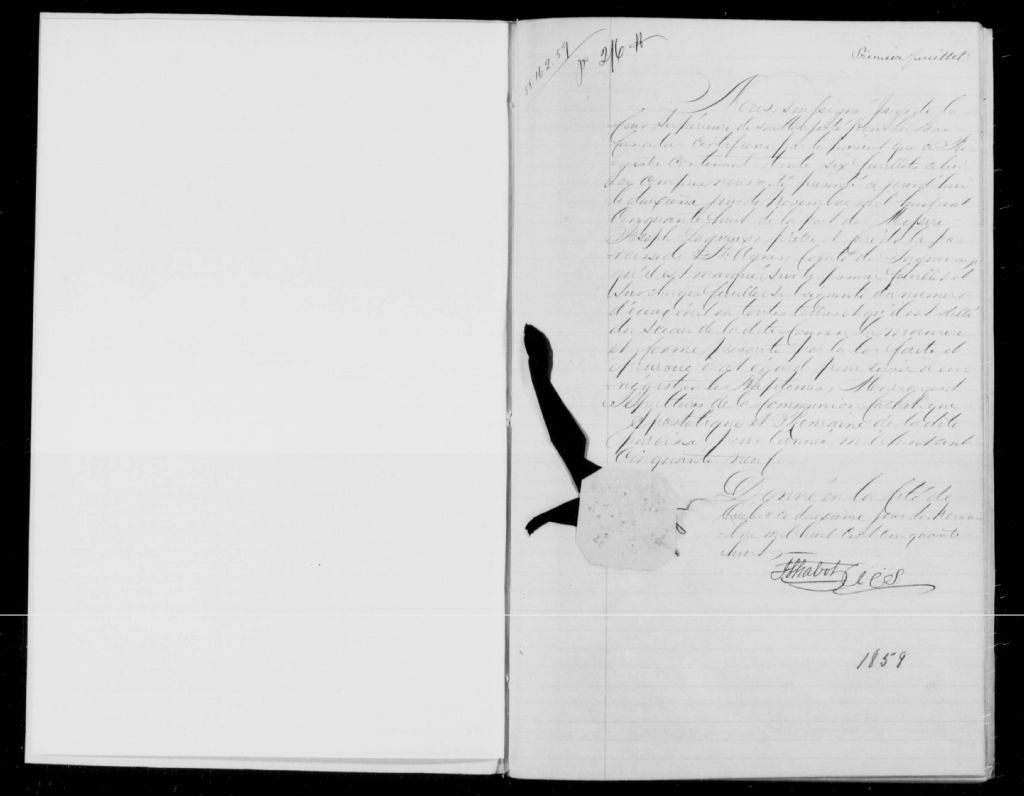 55.162.57
p 216 H
Premier feuillet
Nous, soussigné Juge de la
Cour Supérieure de sa Majesté pour le Bas
Canada certifions par le présent que ce Re-
gistre contenant trente six feuillets celui
ci y compris nous a été présenté ce jourd'hui
le deuxième jour de Novembre mil huit cent
Cinquante huit de la part de Messire
Joseph prêtre et Curé de la pa-
-roisse de St Agnes Comté de Saguenay
qu'il est marqué sur le premier feuillet et
sur chaque feuillet subséquent du numero
d'icelui en toutes lettres et qu'il est scellé
du Sceau de la dite Cour en la manière
et forme prescrite par la loi faite et
pourvue à cet égard pour servir à en-
-régistrer les Baptêmes, Mariages et
Sépultures de la Communion Catholique
Apostolique et Romaine de la dite
paroisse pour l'année mil huit cent
Cinquante neuf.
Donné en la Cité de
Québec ce deuxième jour de Novem-
-bre mil huit cent cinquante
huit
Chabot J C S
1859